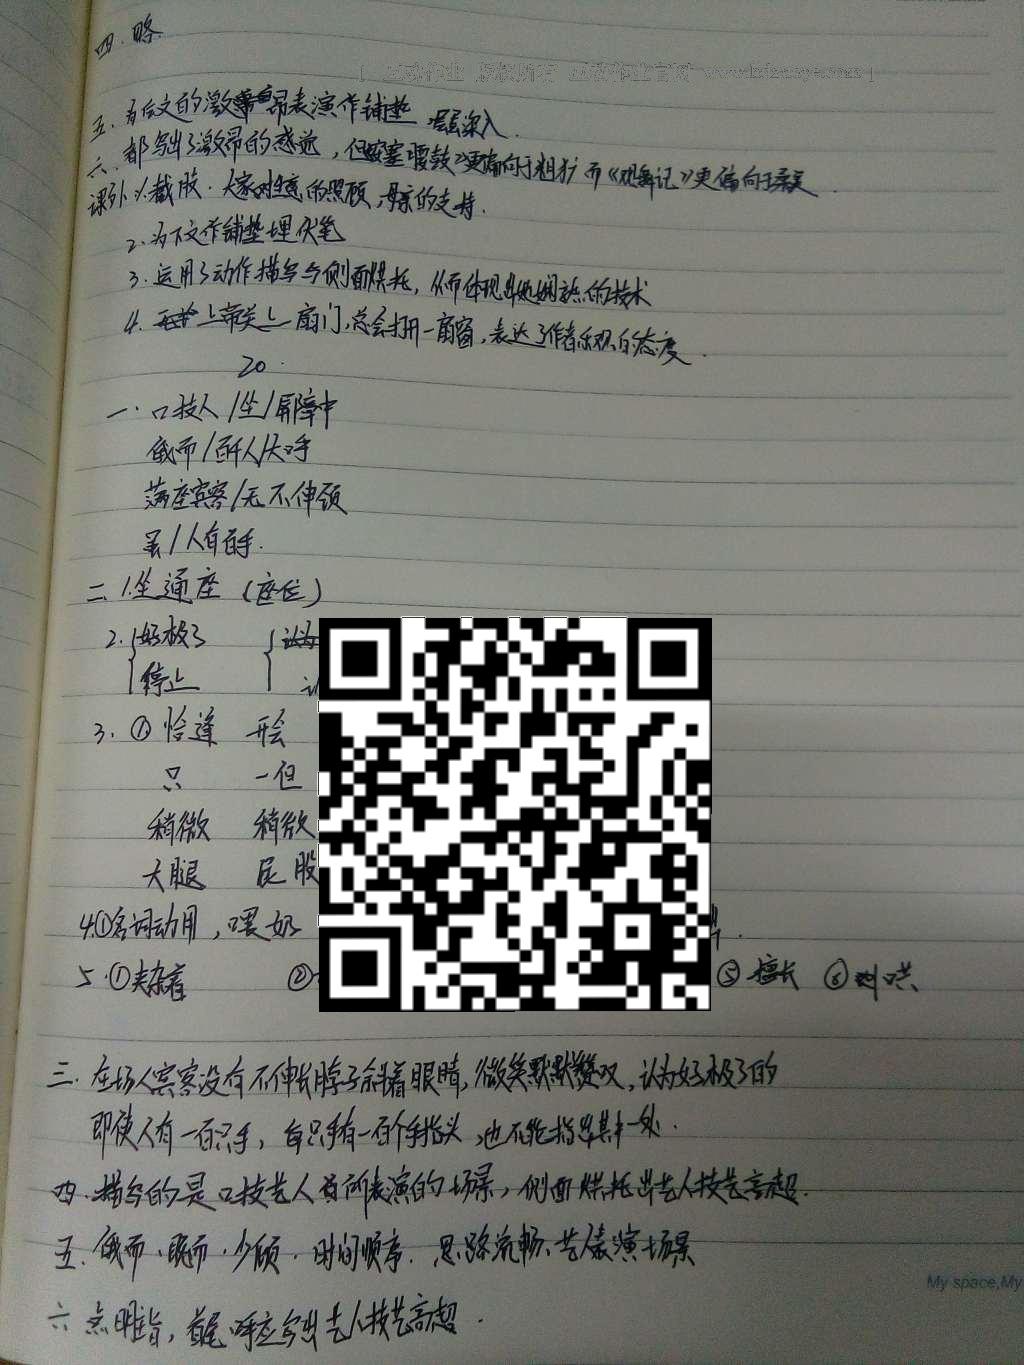 四.略.
五.为后文的激昂表演作铺垫,层层深入.
六.都写出了激昂的感觉,但《安塞腰鼓》更偏向于粗犷而《观舞记》更偏向于柔美.
课外 1.截肢.大家对生意的照顾,母亲的支持.
2.为下文作铺垫埋伏笔
3.运用了动作描写与侧面烘托,从而体现出她娴熟的技术
4.上帝关上一扇门,总会打开一扇窗,表达了作者乐观的态度.
20.
一.口技人/坐/屏障中
俄而/百千人/大呼
满座宾客/无不伸颈
虽/人有百手.
二.1.坐通座(座位)
2.好极了 认为
停止
3.①恰逢 开会
只 一但
稍微 稍微
大腿 屁股
4.①名词动用,喂奶
5.①夹杂着 ② ⑤擅长 ⑥哄
三.在场人宾客没有不伸长脖子斜着眼睛,微笑默默赞叹,认为好极了的
即使人有一百只手,每只手有一百个手指头,也不能指出其中一处.
四.描写的是口技艺人当所表演的场景,侧面烘托出艺人技艺高超.
五.俄而.既而.少顷.时间顺序.思路流畅.艺人表演场景
六.点明主旨,首尾呼应写出艺人技艺高超.
My space,My